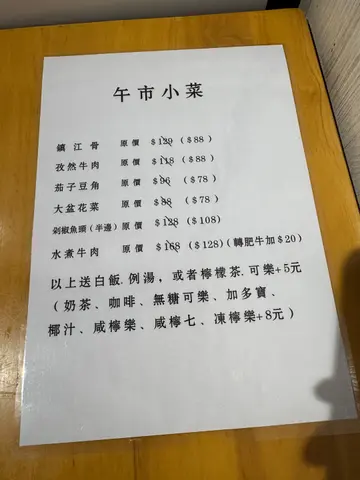 午市小菜
鎮江骨 原價 $129 ($88)
孜然牛肉 原價 $118 ($88)
茄子豆角 原價 $96 ($78)
大盆花菜 原價 $88 ($78)
剁椒魚頭(半邊) 原價 $128 ($108)
水煮牛肉 原價 $168 ($128)(轉肥牛加$20)
以上送白飯.例湯，或者檸檬茶.可樂+5元
(奶茶、咖啡、無糖可樂、加多寶、
椰汁、咸檸樂、咸檸七、凍檸樂+8元)